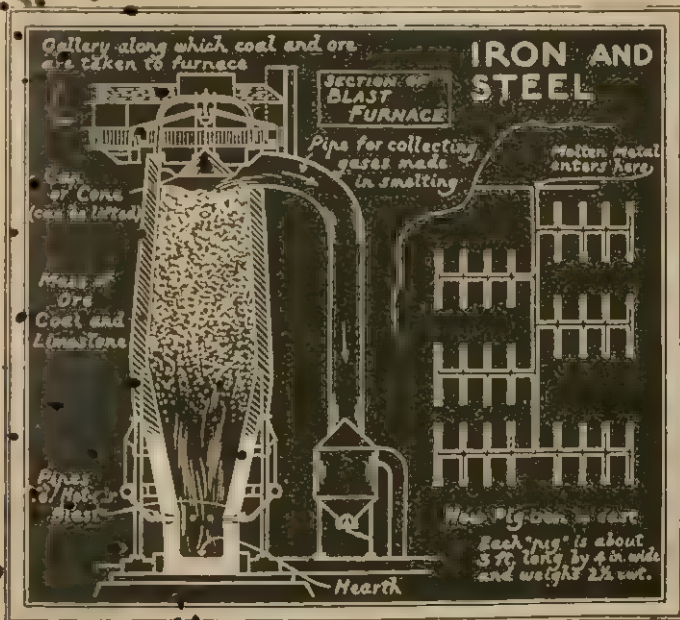 Gallery along which coal and ore
are taken to furnace
IRON AND
STEEL
SECTION OF
BLAST
FURNACE
Pipe for collecting
gases made
in smelting
Molten Metal
enters here
or Cone
(can be lifted)
Ore
Coal and
Limestone
Pipes
Hearth
Each "pig" is about
3 ft. long by 4 in. wide
and weighs 2½ cwt.